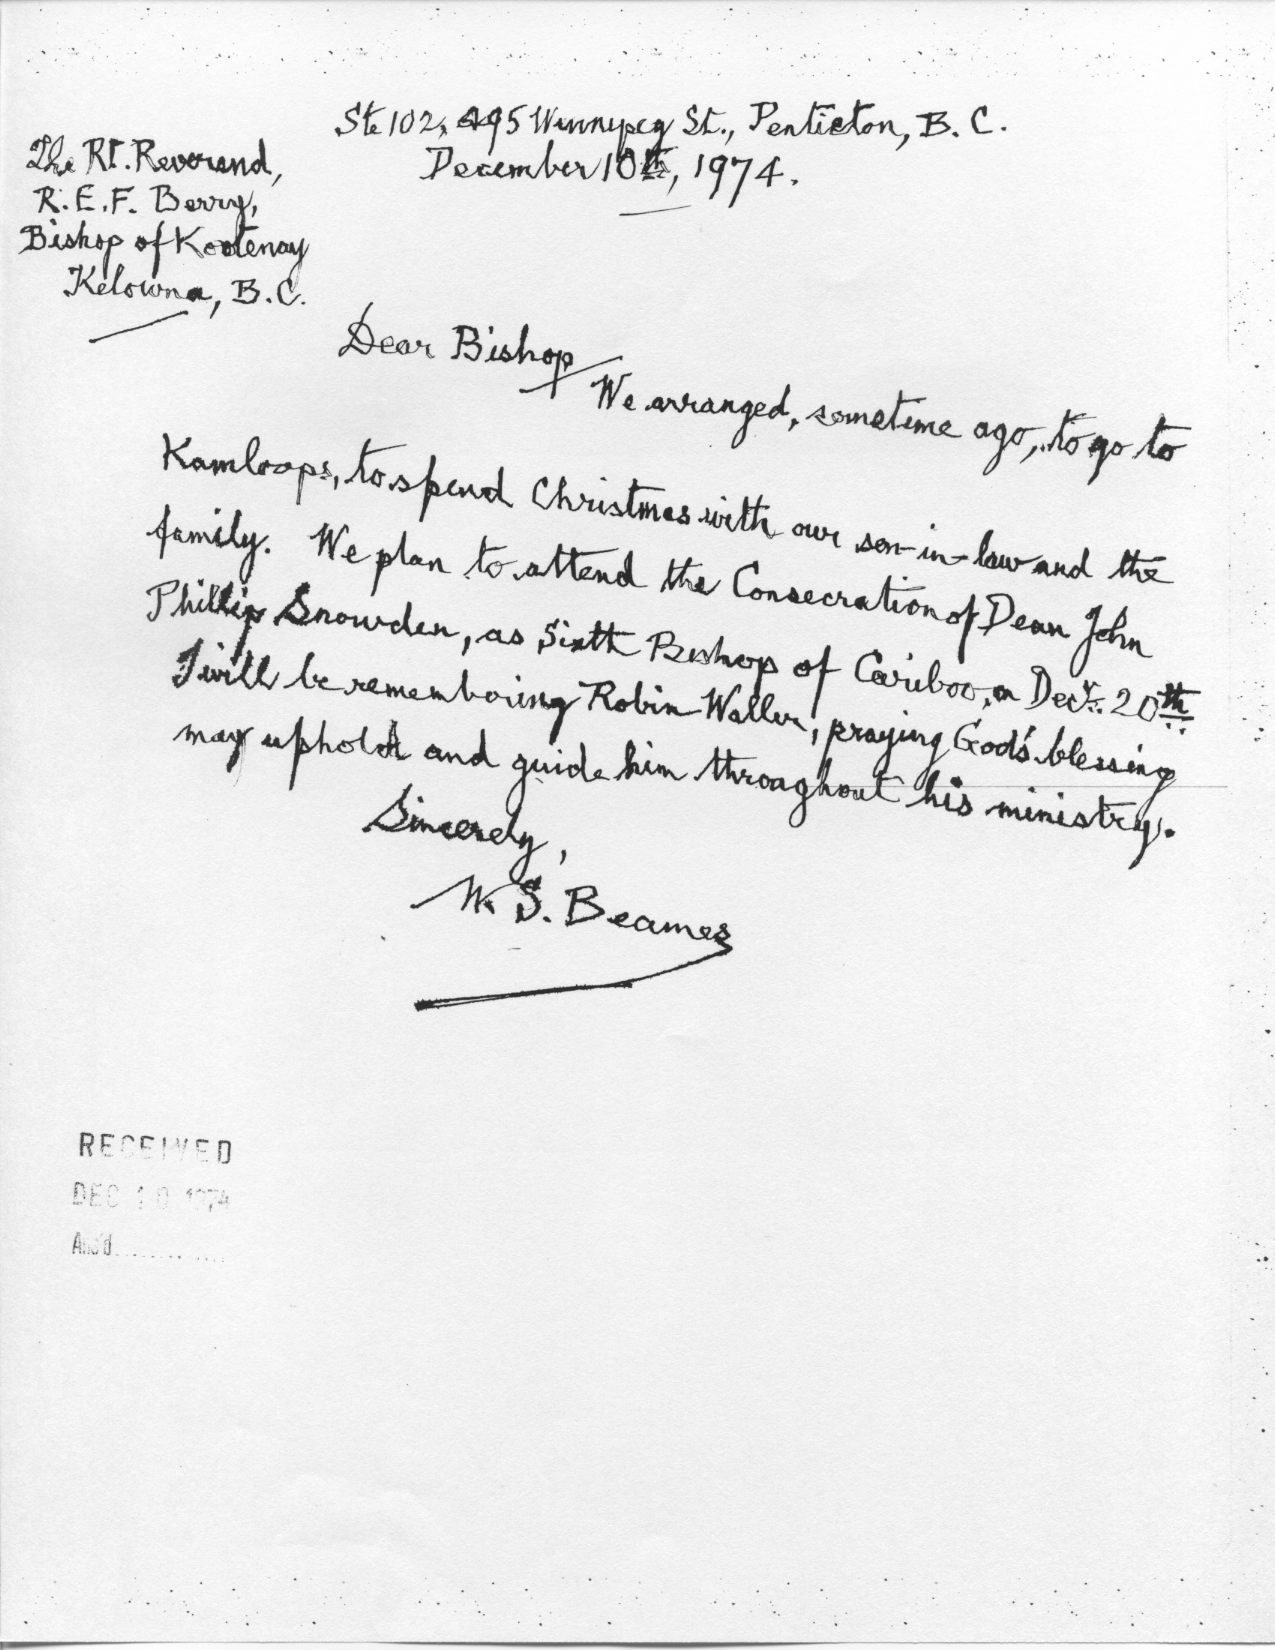 Ste 102, 495 Winnypeg St., Penticton, B.C.
December 10th, 1974.
The Rt. Reverend,
R.E.F. Berry,
Bishop of Kootenay
Kelowna, B.C.
Dear Bishop
We arranged, sometime ago, to go to
Kamloops, to spend Christmas with our son-in-law and the
family. We plan to attend the Consecration of Dean John
Phillip Snowden, as Sixth Bishop of Cariboo, on Decr. 20th
I will be remembering Robin Waller, praying God's blessing
may uphold and guide him throughout his ministry.
Sincerely,
W. S. Beames
RECEIVED
DEC 10 1974
Ans'd..............